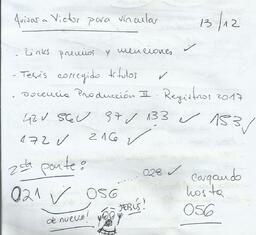 Avisar a Victor para vincular 13/12
- Links premios y menciones ✓
- Tesis corregido títulos ✓
- Docencia Producción II - Registros 2017
42 ✓ 56 ✓ 97 ✓ 133 ✓ 153 ✓
172 ✓ 216 ✓
2da parte:
028 ✓ cargando
021 ✓ 056 hasta
de nuevo! JESÚS! 056